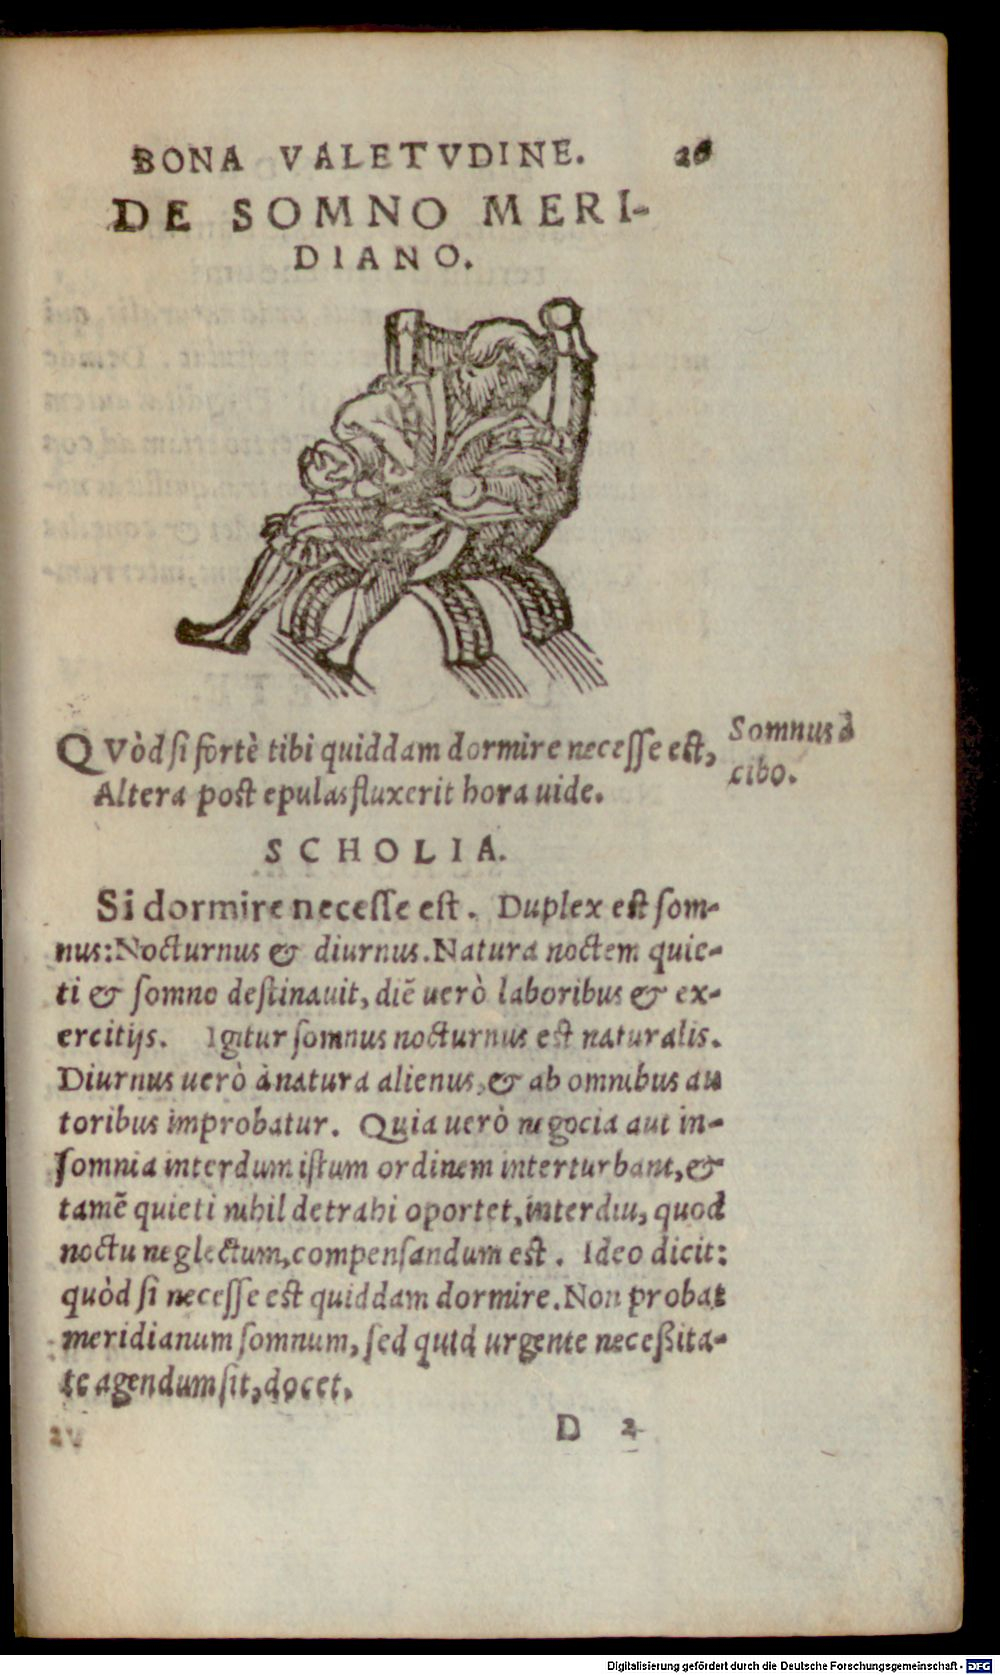 BONA VALETVDINE. 26
DE SOMNO MERI-
DIANO.
QVòd ſi fortè tibi quiddam dormire neceſſe est,
Altera post epulas fluxerit hora uide.
Somnus à
cibo.
SCHOLIA.
Si dormire neceſſe est. Duplex est ſom-
nus: Nocturnus & diurnus. Natura noctem quie-
ti & ſomno deſtinauit, diē uerò laboribus & ex-
ercitijs. Igitur ſomnus nocturnus est naturalis.
Diurnus uerò à natura alienus, & ab omnibus au
toribus improbatur. Quia uerò negocia aut in-
ſomnia interdum iſtum ordinem interturbant, &
tamē quieti nihil detrahi oportet, interdiu, quod
noctu neglectum, compenſandum est. Ideo dicit:
quòd ſi neceſſe est quiddam dormire. Non probat
meridianum ſomnum, ſed quid urgente neceßita-
te agendum ſit, docet.
D 2
Digitalisierung gefördert durch die Deutsche Forschungsgemeinschaft - DFG